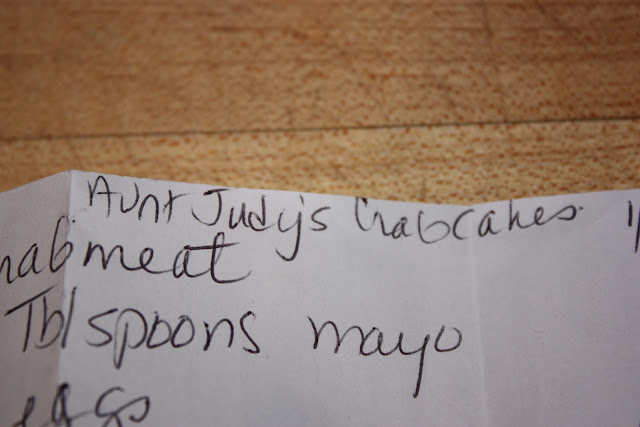 Aunt Judy's Crabcakes
rabmeat
Tblspoons mayo
eggs